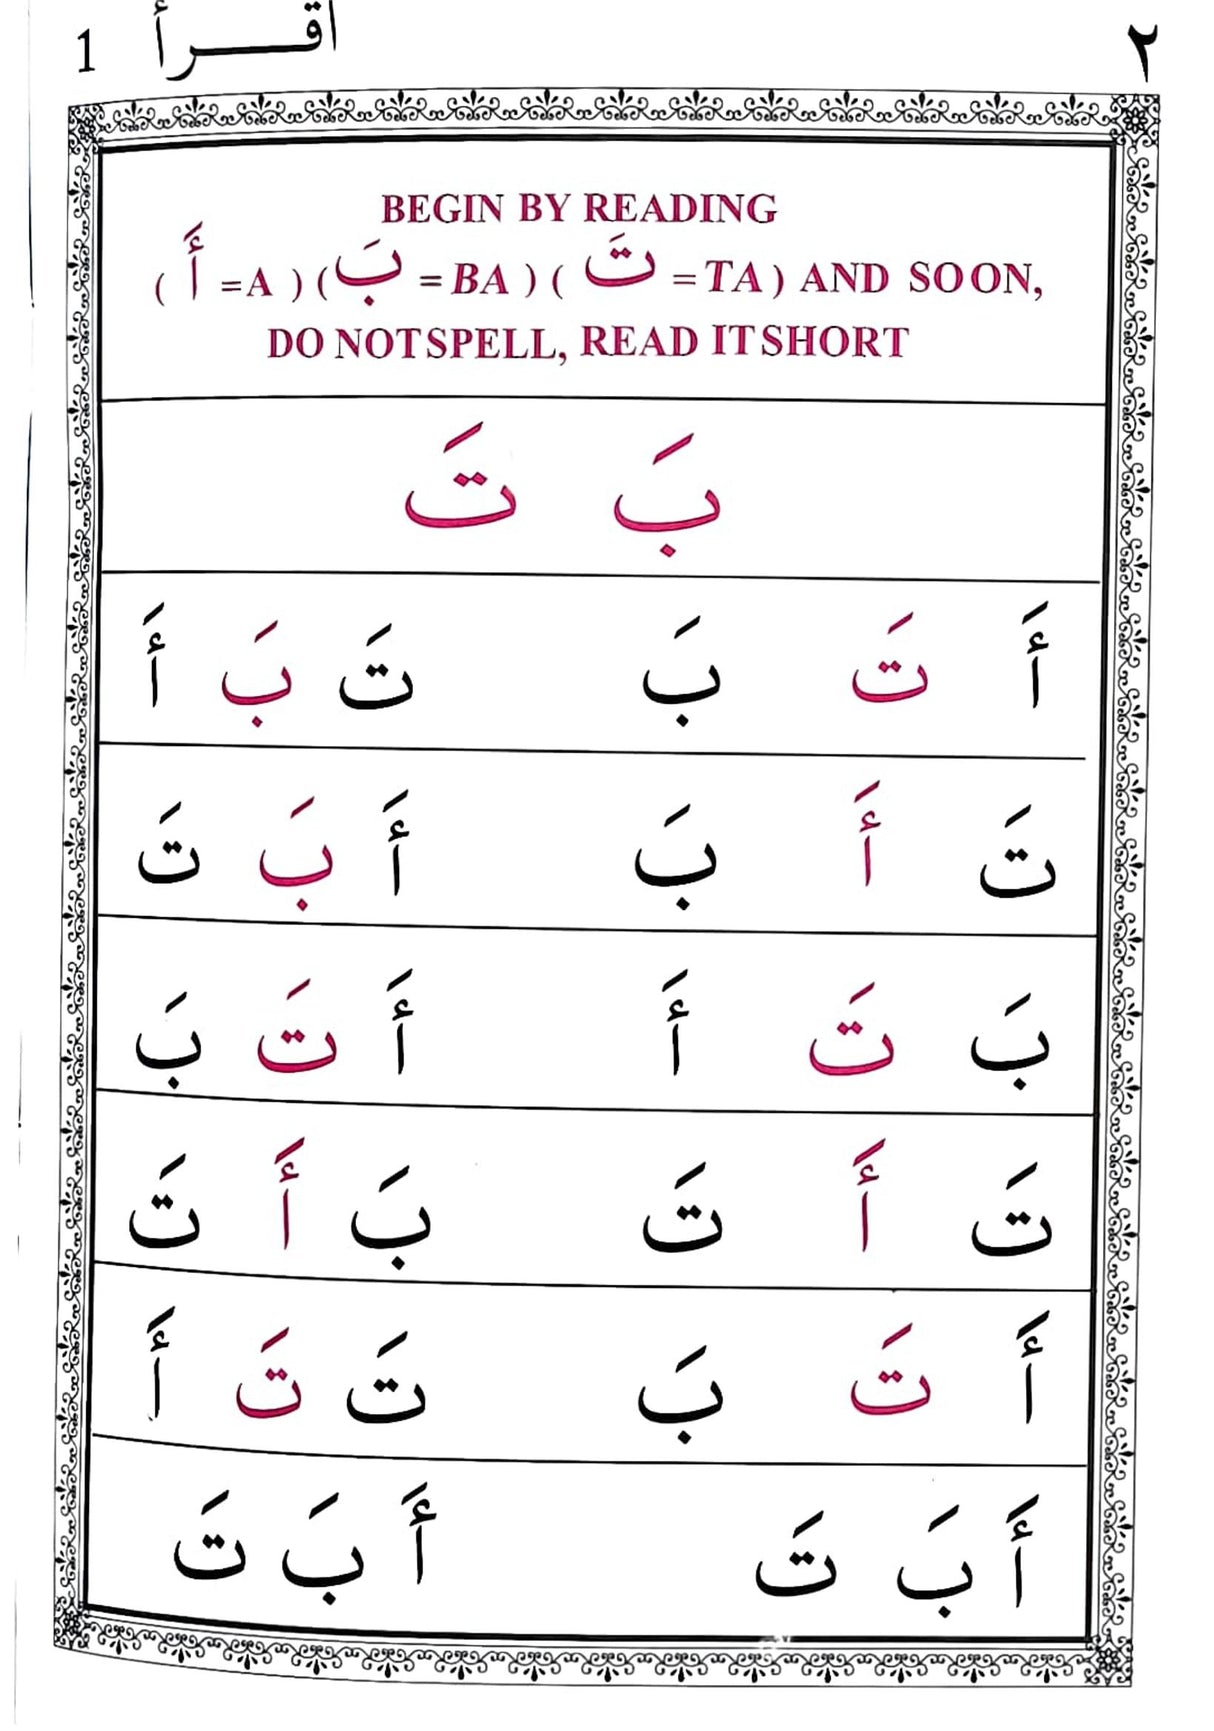 ٢ اقـــرأ 1
BEGIN BY READING
( أَ =A ) ( بَ = BA ) ( تَ = TA ) AND SO ON,
DO NOT SPELL, READ IT SHORT
بَ تَ
أَ تَ بَ تَ بَ أَ
تَ أَ بَ أَ بَ تَ
بَ تَ أَ أَ تَ بَ
تَ أَ تَ بَ أَ تَ
أَ تَ بَ تَ تَ أَ
أَ بَ تَ أَ بَ تَ